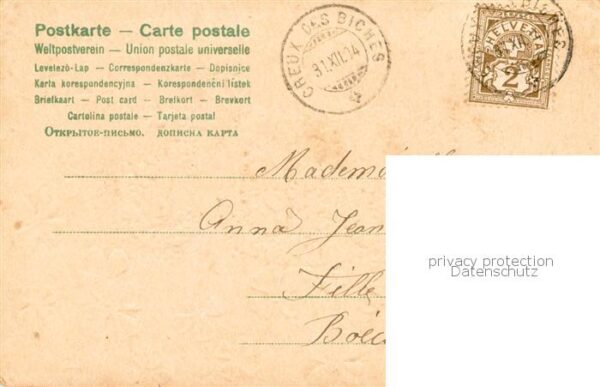 Postkarte — Carte postale
Weltpostverein — Union postale universelle
Levelező-Lap — Correspondenzkarte — Dopisnice
Karta korespondencyjna — Korespondenční lístek
Briefkaart — Post card — Brefkort — Brevkort
Cartolina postale — Tarjeta postal
Открытое-письмо. дописна карта
CREUX DES BICHES
31.XII.04
HELVETIA
2
Anna Jean
Fille
privacy protection
Datenschutz